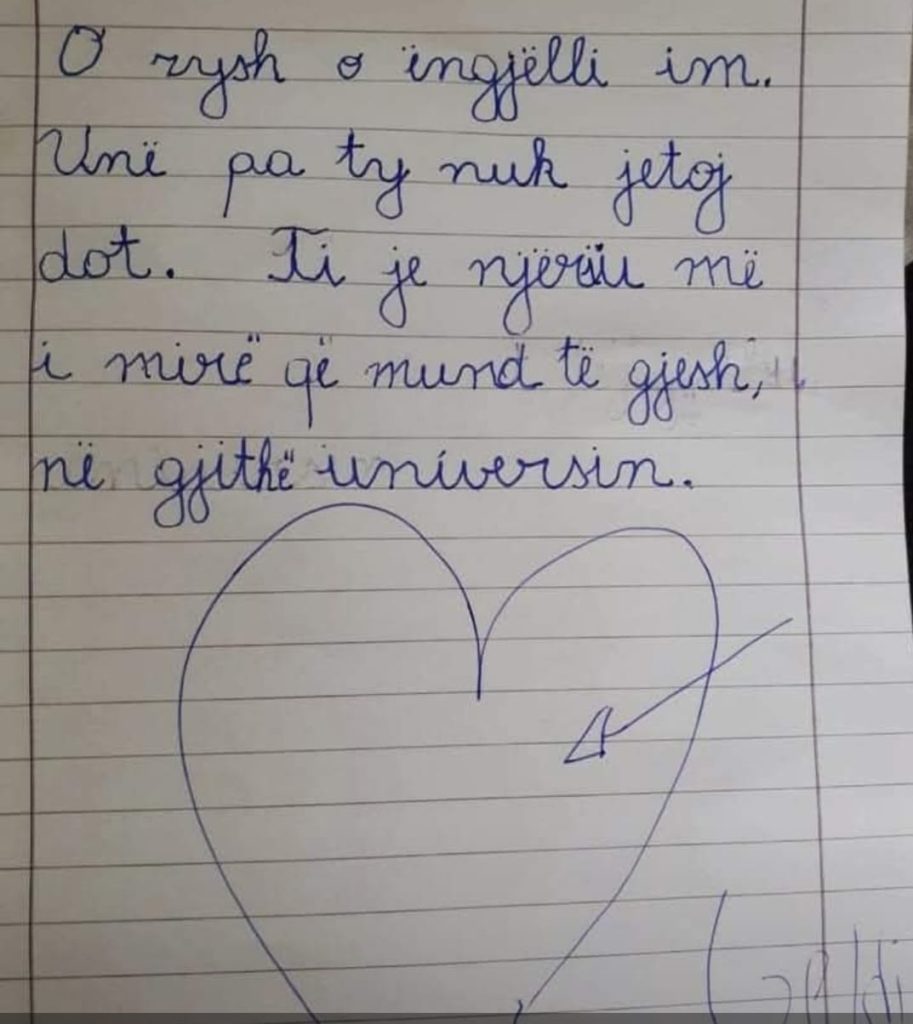 O rysh o ëngjëlli im.
Unë pa ty nuk jetoj
dot. Ti je njëriu më
i mirë që mund të gjesh,
në gjithë universin.